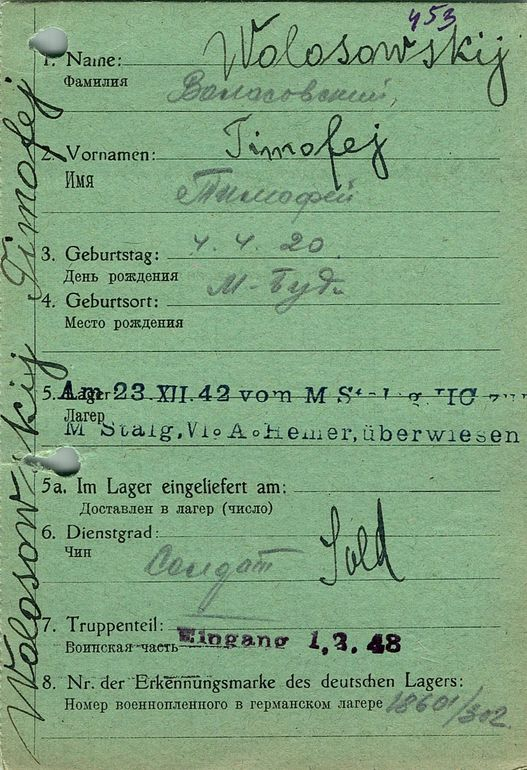 453
1. Name: Wolosowskij
Фамилия Валасовский,
2. Vornamen: Timofej
Имя Тимофей
3. Geburtstag: 4. 4. 20.
День рождения
4. Geburtsort: М-Буда
Место рождения
5. Lager: Am 23 XII. 42 vom M Stalg. IIG zum
Лагер M Stalg. VI. A. Hemer, überwiesen
5a. Im Lager eingeliefert am:
Доставлен в лагер (число)
6. Dienstgrad: Sold
Чин Солдат
7. Truppenteil:
Воинская часть Eingang 1. 2. 48
8. Nr. der Erkennungsmarke des deutschen Lagers:
Номер военнопленного в германском лагере 18601/302
Wolosowskij Timofej